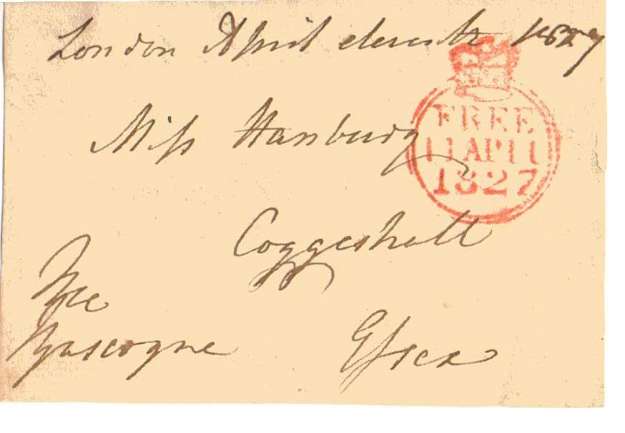 London April eleventh 1827
FREE
11 AP 11
1827
Miss Hanbury
Coggeshall
Free
Gascoyne
Essex